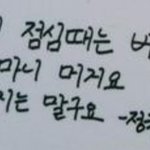 점심때는
마니 머거요
지는 말구요 -정